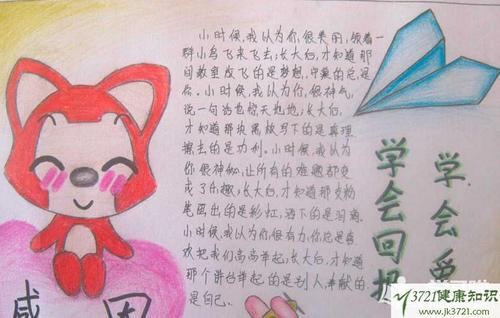 小时候,我认为你很美丽,领着一
群小鸟飞来飞去;长大后,才知道那
间教室放飞的是梦想,守巢的总是
你。小时候,我认为你,很神气,
说一句话也惊天动地;长大后,
才知道那块黑板写下的是真理
擦去的是功利。小时候,我认为
你很神秘,让所有的难题都变
成了乐趣;长大后,才知道那支粉
笔画出的是彩虹,洒下的是泪滴。
小时候,我认为你很有力,你总是喜
欢把我们高高举起;长大后,才知道
那个讲台举起的是别人,奉献的
是自己。
学会回报
学会
感恩
3721健康知识
www.jk3721.com